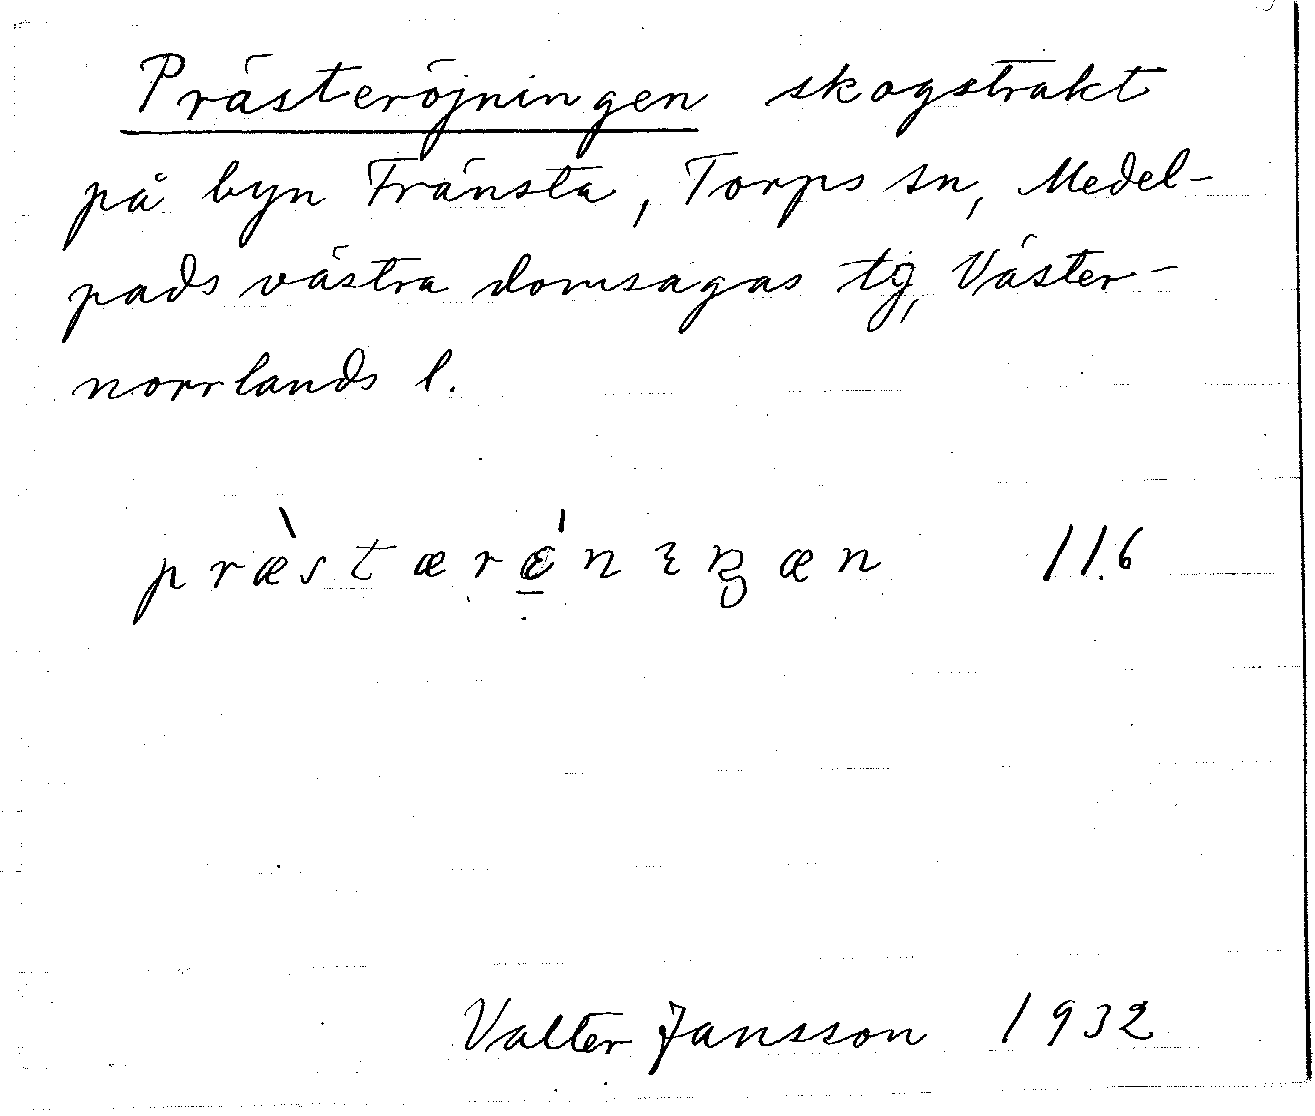 Prästeröjningen skogstrakt
på byn Fränsta, Torps sn, Medel-
pads västra domsagas tg, Väster-
norrlands l.
præ̀stærɛ̲́nıŋæn 11.6
Valter Jansson 1932